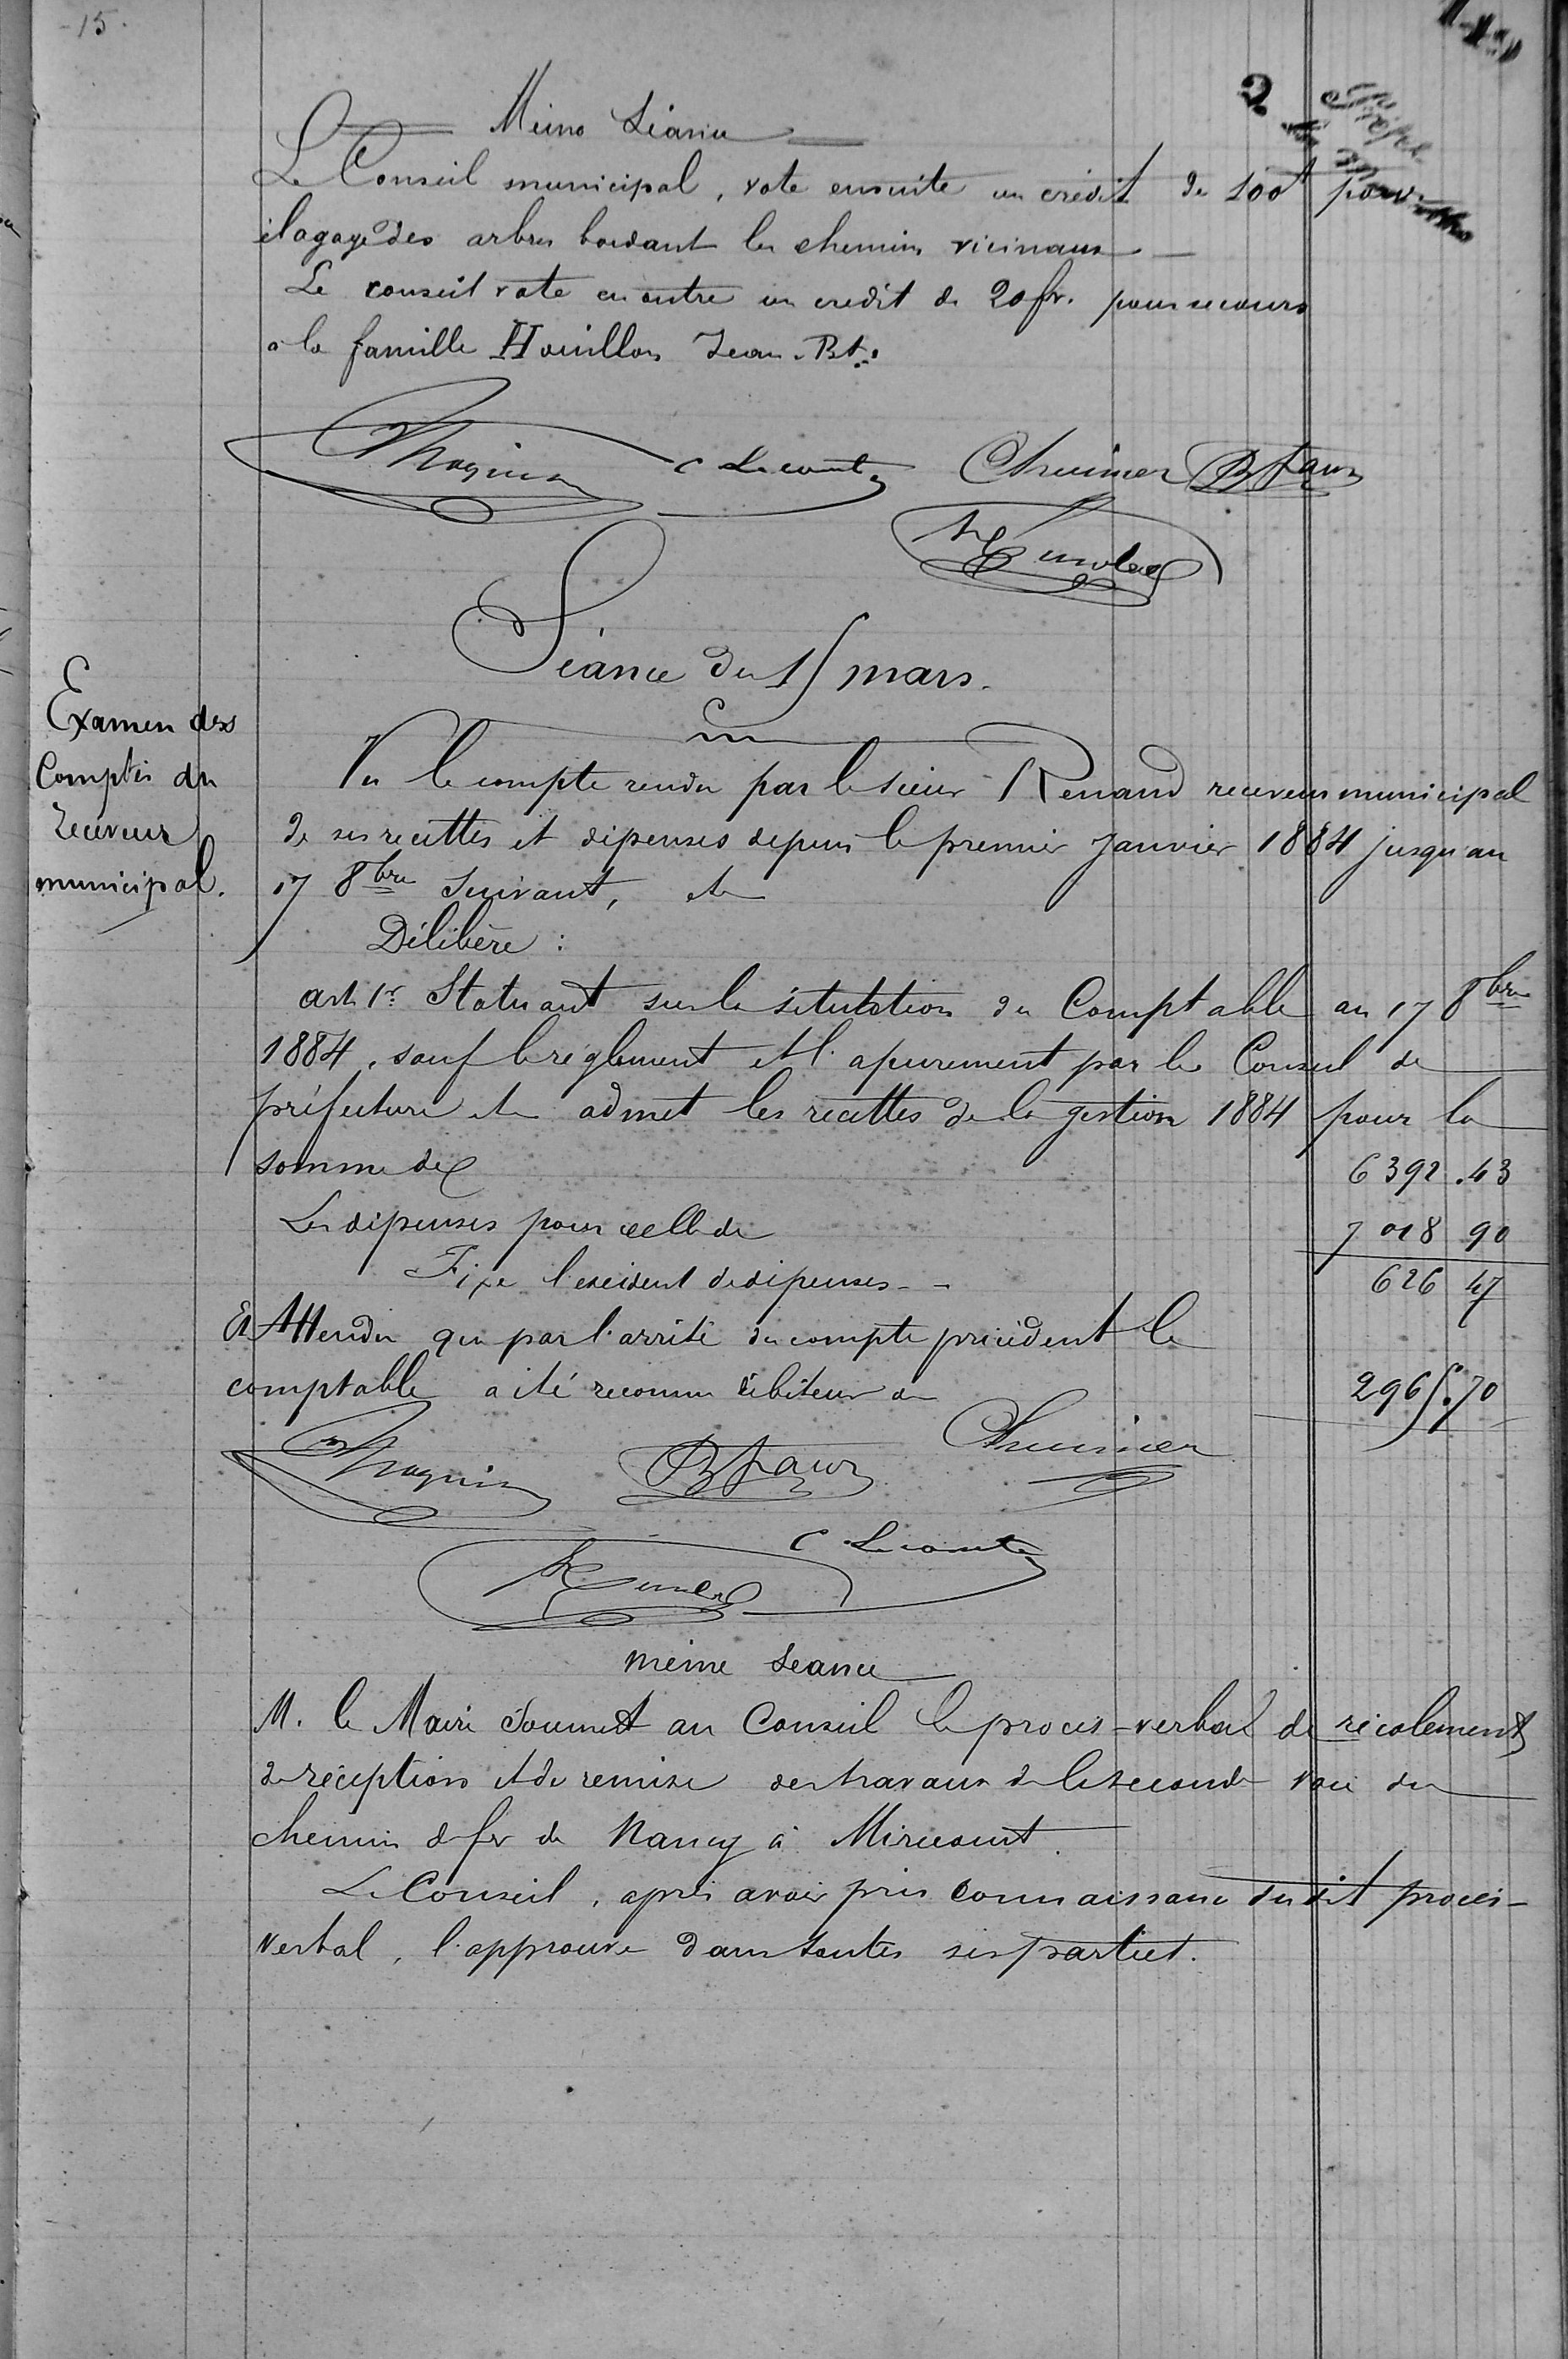 -15-
Même Séance
Le Conseil municipal, vote ensuite un crédit de 100f pour
élagage des arbres bordant les chemins vicinaux
Le conseil vote en outre un crédit de 20 fr. pour secours
à la famille Houillon Jean-Bte
C Lecomte
Séance du 15 mars.
Examen des
Comptes du
receveur
municipal.
Vu le compte rendu par le sieur Renand receveur municipal
de ses recettes et dépenses depuis le premier janvier 1884 jusqu'au
17 8bre suivant, etc
Délibère :
art 1er Statuant sur la situation du Comptable au 17 8bre
1884, sauf le règlement et l'apurement par le Conseil de
préfecture etc admet les recettes de la gestion 1884 pour la
somme de 6392.43
Les dépenses pour celle de 7018 90
Fixe l'excédent de dépenses - - 626 47
Et Attendu que par l'arrêté du compte précédent le
comptable a été reconnu débiteur de 2965.70
C Lecomte
même séance
M. le Maire soumet au Conseil le procès-verbal de récolement
de réception et de remise des travaux de la seconde voie du
chemin de fer de Nancy à Mirecourt.
Le Conseil, après avoir pris connaissance du dit procès-
verbal, l'approuve dans toutes ses parties.